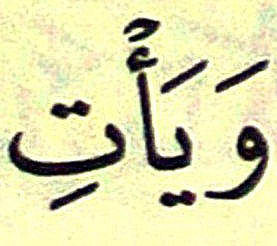 وَيَأْتِ